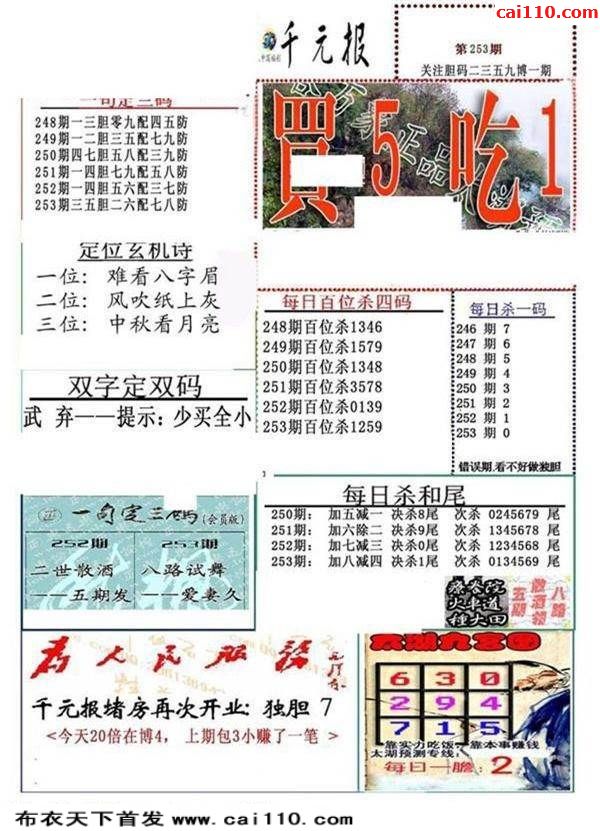 cai110.com
千元报
第253期
关注胆码二三五九博一期
一句定三码
248期一三胆零九配四五防
249期一二胆三五配七九防
250期四七胆五八配三九防
251期一四胆七九配五八防
252期一四胆五六配三七防
253期三五胆二六配七八防
買5吃1
正品
定位玄机诗
一位：难看八字眉
二位：风吹纸上灰
三位：中秋看月亮
双字定双码
武 弃——提示：少买全小
每日百位杀四码
248期百位杀1346
249期百位杀1579
250期百位杀1348
251期百位杀3578
252期百位杀0139
253期百位杀1259
每日杀一码
246 期 7
247 期 6
248 期 5
249 期 4
250 期 3
251 期 2
252 期 1
253 期 0
错误期,看不好做独胆
一句定三码(会员版)
252期 253期
二世散酒 八路试舞
——五期发 ——爱妻久
每日杀和尾
250期： 加五减一 决杀8尾 次杀 0245679 尾
251期： 加六除二 决杀9尾 次杀 1345678 尾
252期： 加七减三 决杀0尾 次杀 1234568 尾
253期： 加八减四 决杀1尾 次杀 0134569 尾
火车道
种大田
五期
散酒领
八路
为人民服务
千元报堵房再次开业：独胆 7
<今天20倍在博4， 上期包3小赚了一笔>
太湖九宫图
6 3 0
2 9 4
7 1 5
靠实力吃饭 靠本事赚钱
太湖预测专线：
每日一胆：2
布衣天下首发 www.cai110.com